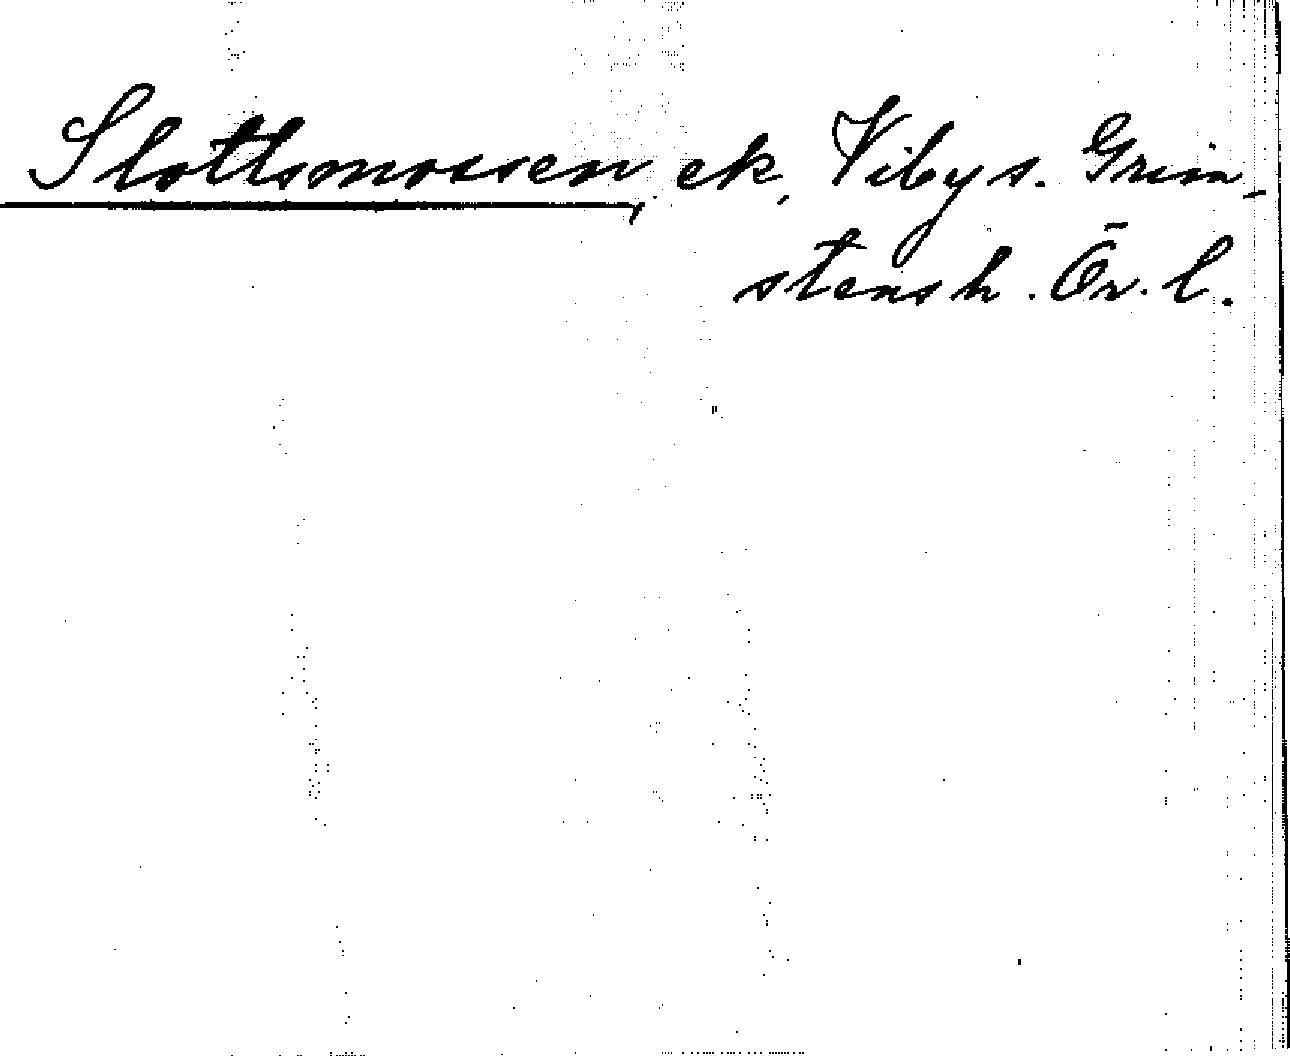 Slottsmossen, ek, Viby s. Grim-
stens h. Ör. l.